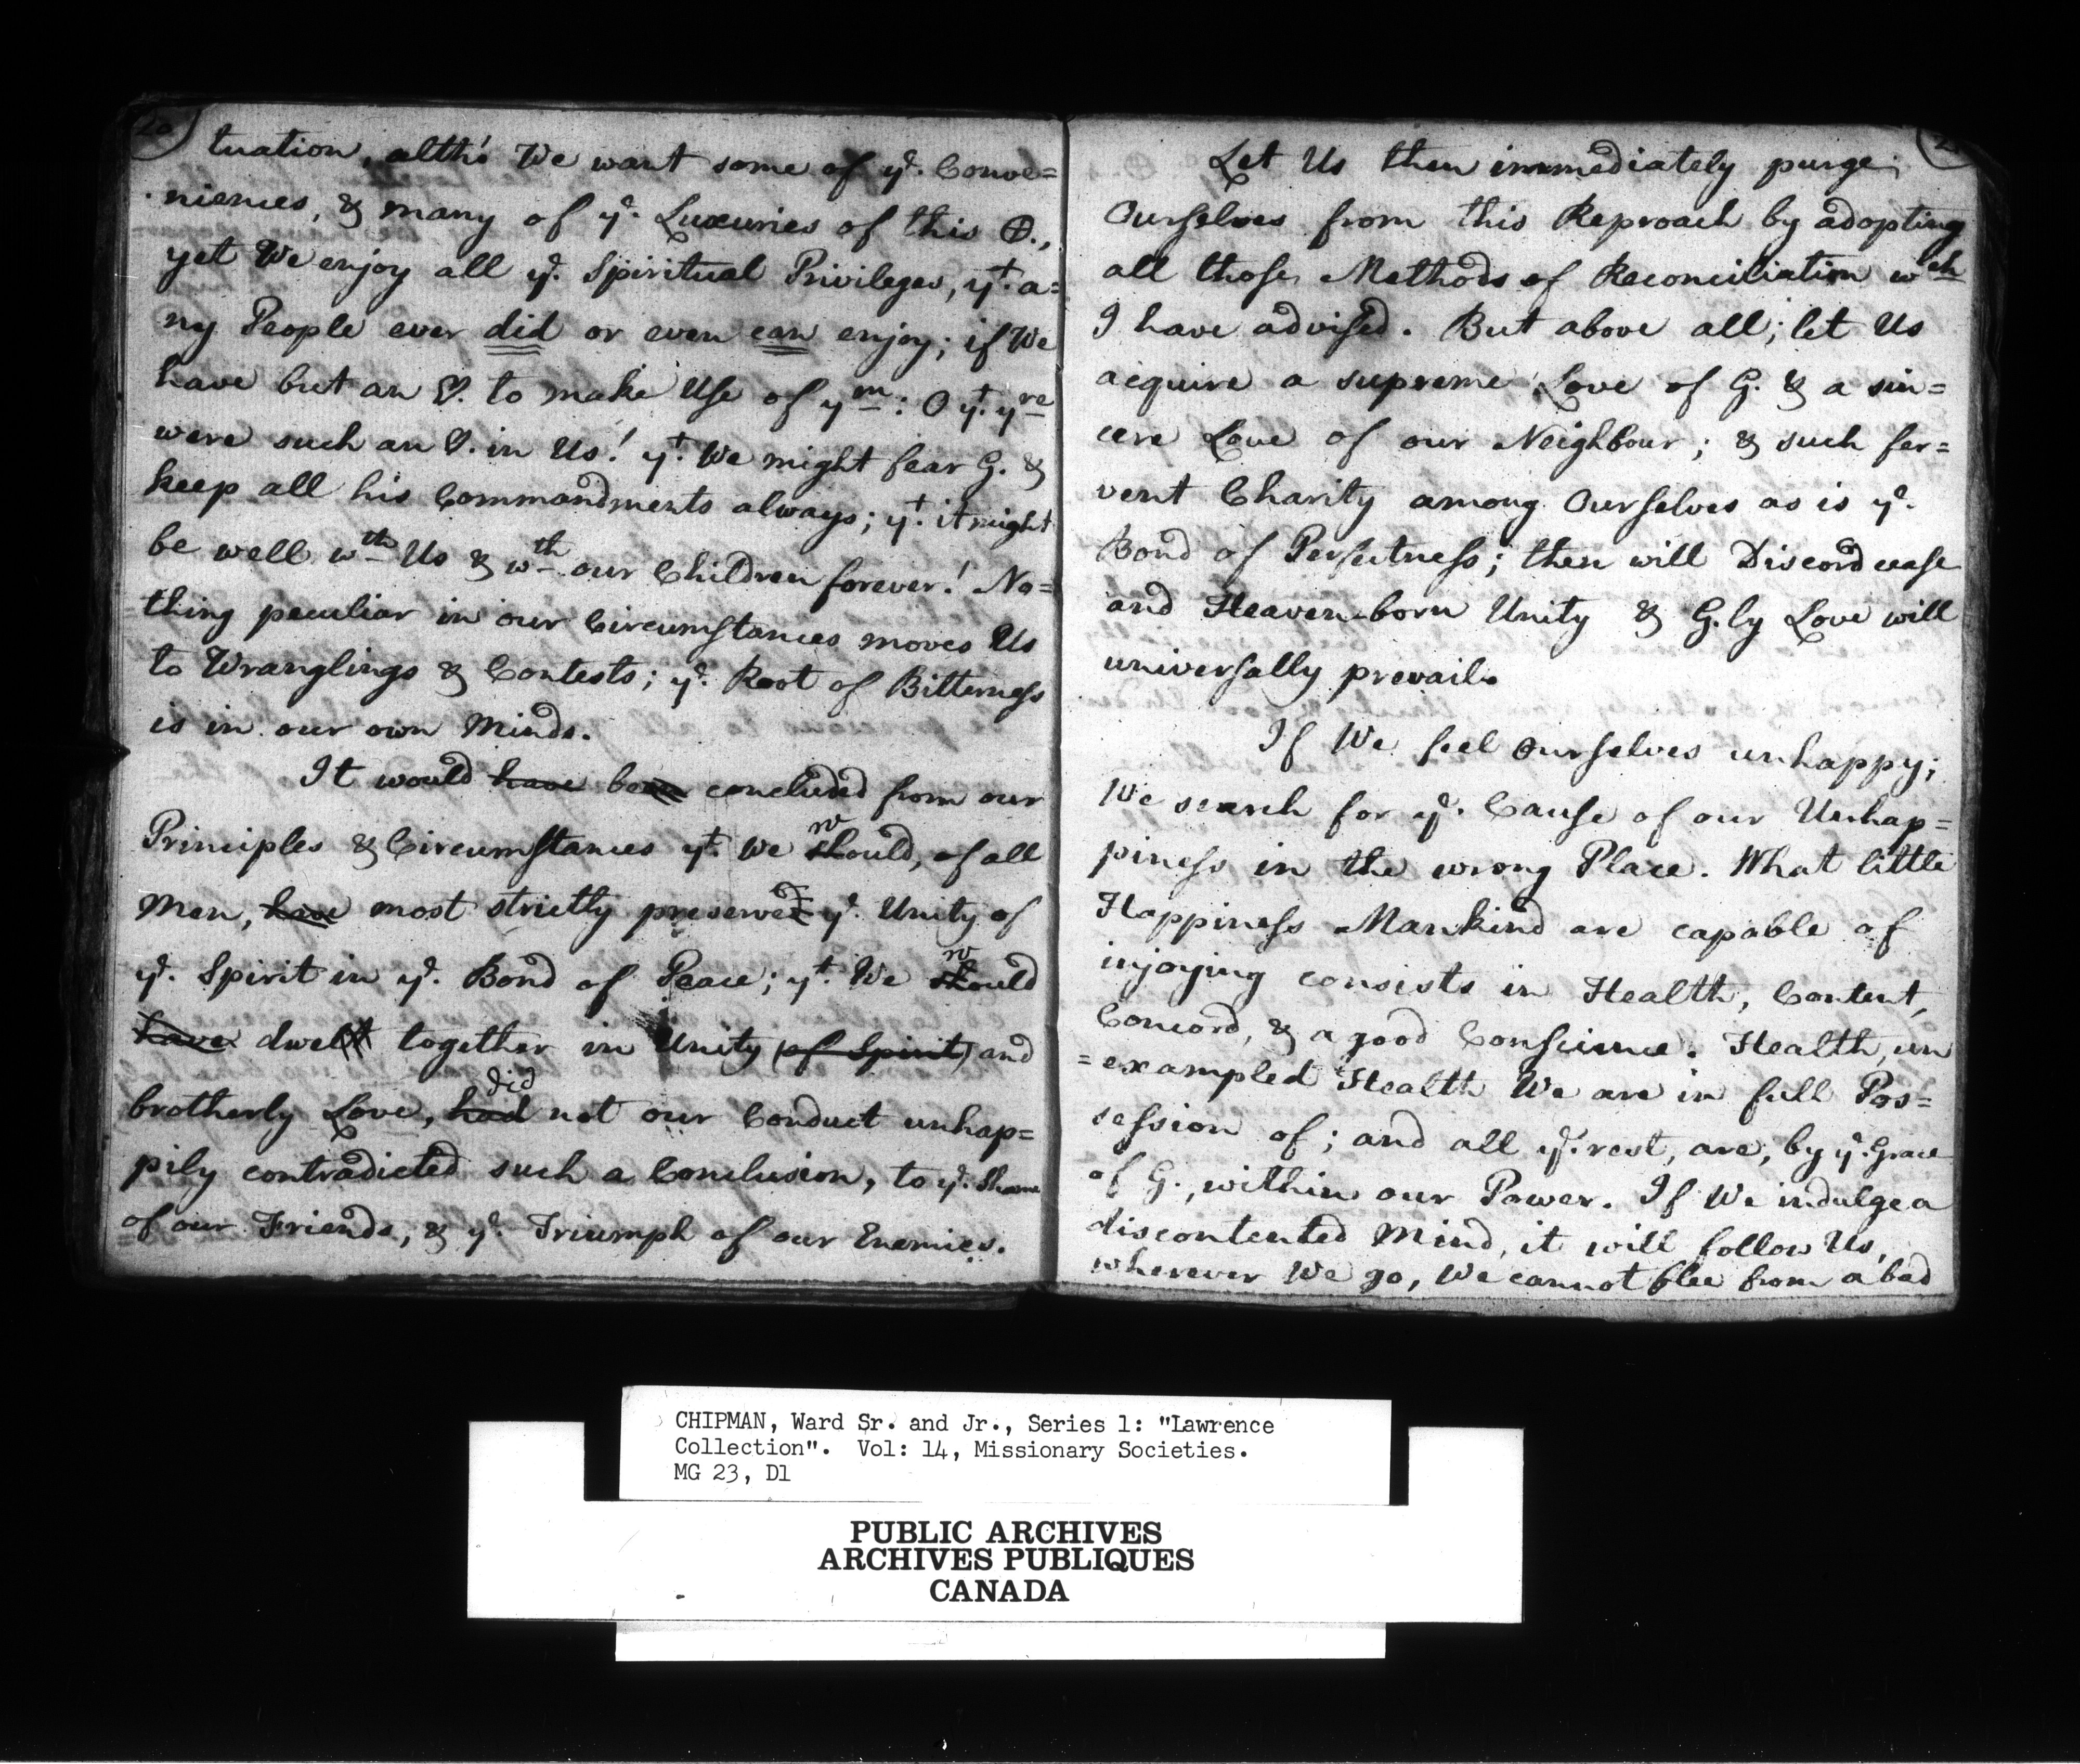 20
tuation, altho' We want some of ye. Conve=
niences, & many of ye. Luxuries of this ⊕.,
yet We enjoy all ye. Spiritual Privileges, yt. a=
ny People ever did or even can enjoy; if We
have but an ♡. to make Use of ym: O yt. yre
were such an ♡. in Us! yt. We might fear G. &
keep all his Commandments always; yt. it might
be well wth Us & wth our Children forever! No=
thing peculiar in our Circumstances moves Us
to Wranglings & Contests; ye. Root of Bitterness
is in our own Minds.
It would have been concluded from our
Principles & Circumstances yt. We w should, of all
Men, have most strictly preserved ye. Unity of
ye. Spirit in ye. Bond of Peace; yt. We w should
have dwelt together in Unity (of Spirit) and
brotherly Love, had did not our Conduct unhap=
pily contradicted such a Conclusion, to ye. Shame
of our Friends, & ye. Triumph of our Enemies.
Let Us then immediately purge
Ourselves from this Reproach by adopting
all those Methods of Reconciliation wch
I have advised. But above all; let Us
acquire a supreme Love of G. & a sin=
cere Love of our Neighbour; & such fer=
vent Charity among Ourselves as is ye.
Bond of Perfectness; then will Discord cease
and Heaven-born Unity & G.ly Love will
universally prevail.
If We feel Ourselves unhappy;
We search for ye. Cause of our Unhap=
piness in the wrong Place. What little
Happiness Mankind are capable of
injoying consists in Health, Content,
Concord, & a good Conscience. Health, un
=exampled Health We are in full Pos=
session of; and all ye. rest, are, by ye. Grace
of G., within our Power. If We indulge a
discontented Mind, it will follow Us,
wherever We go, We cannot flee from a bad
CHIPMAN, Ward Sr. and Jr., Series 1: "Lawrence
Collection". Vol: 14, Missionary Societies.
MG 23, D1
PUBLIC ARCHIVES
ARCHIVES PUBLIQUES
CANADA